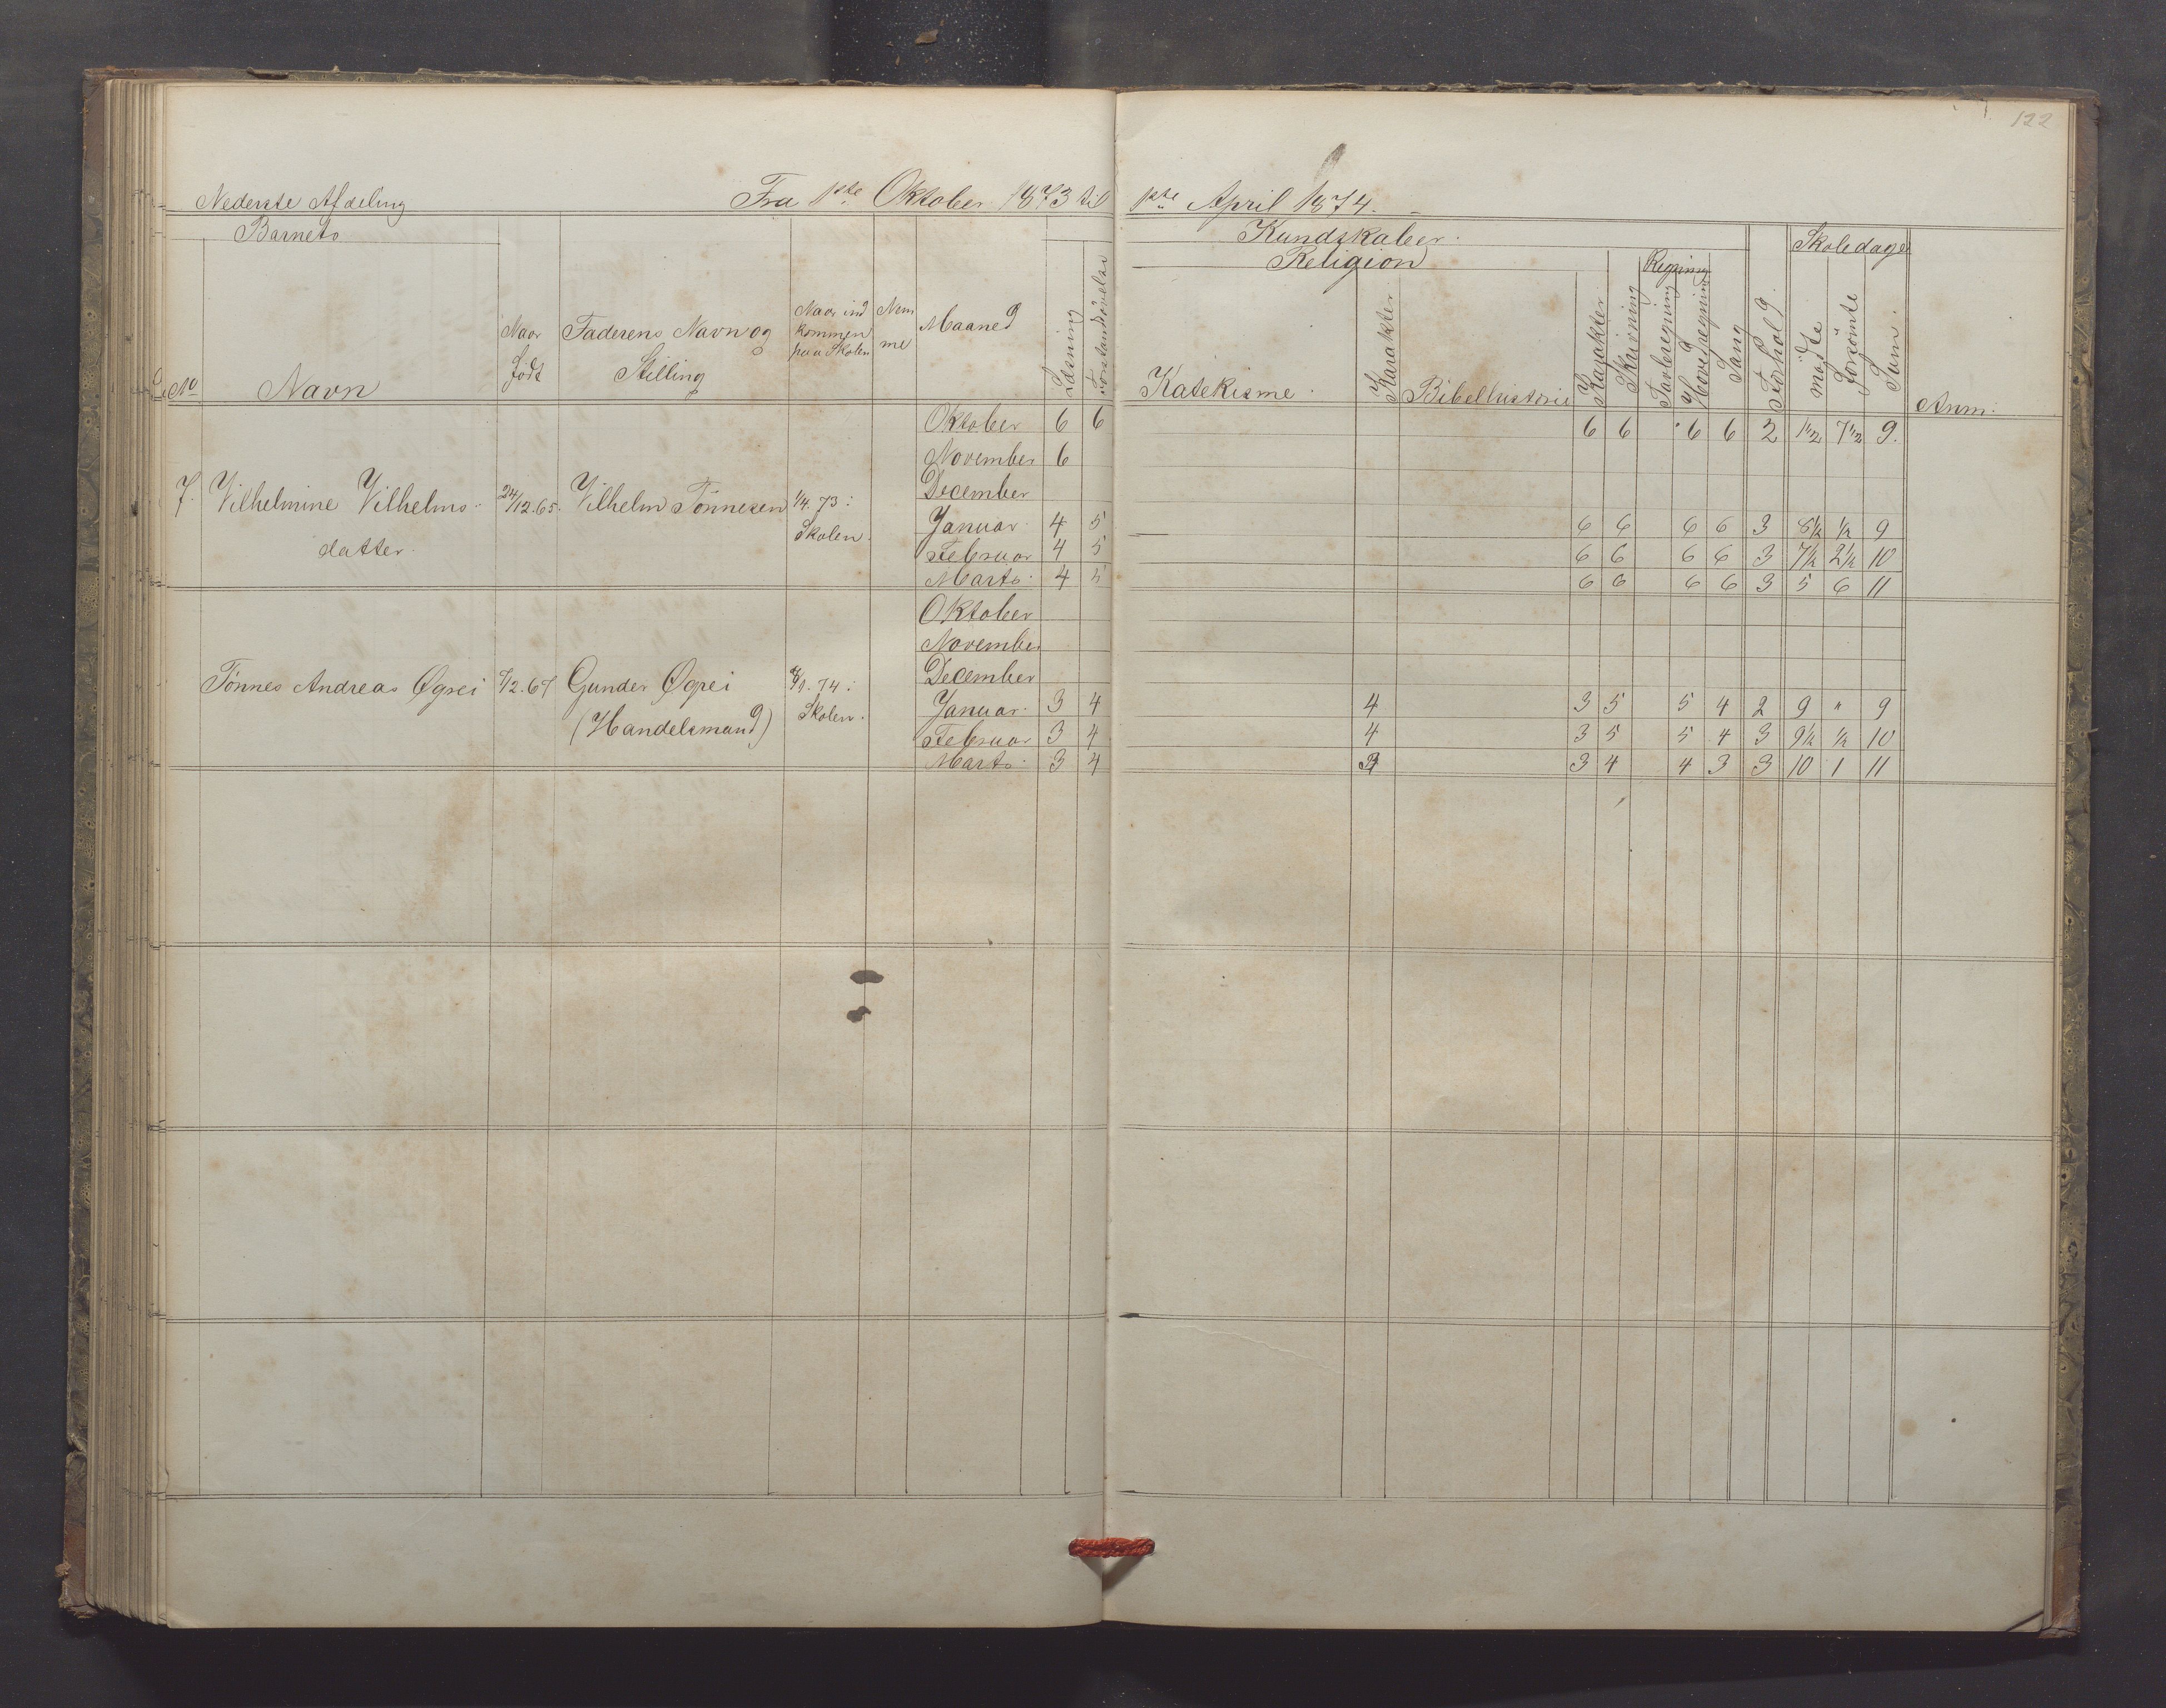 122
Nederste Afdeling Fra 1ste Oktober 1873 til 1ste April 1874.
Barnets Kundskaber. Skoledage
Religion Regning
No Navn Naar født Faderens Navn og Stilling Naar ind kommen paa Skolen Nem me Maaned Læsning Forstandsøvelse Katekisme. Karakter. Bibelhistorie Karakter Skrivning Tavleregning Hovedregning Sang Forhold. mødte forsømte Sum. Anm.
Oktober 6 6 6 6 6 6 2 1 1/2 7 1/2 9.
November 6
December
7. Vilhelmine Vilhelms- 24/12.65. Vilhelm Tønnesen 1/4.73:
datter. Skolen.
Januar. 4 5 6 6 6 6 3 8 1/2 1/2 9
Februar 4 5 6 6 6 6 3 7 1/2 2 1/2 10
Marts. 4 5 6 6 6 6 3 5 6 11
Oktober
November
December
Tønnes Andreas Øgrei Gunder Øgrei
(Handelsmand) Skolen.
Januar. 3 4 4 3 5 5 4 2 9 " 9
Februar 3 4 4 3 5 5 4 3 9 1/2 1/2 10
Marts. 3 4 3 4 4 3 3 10 1 11